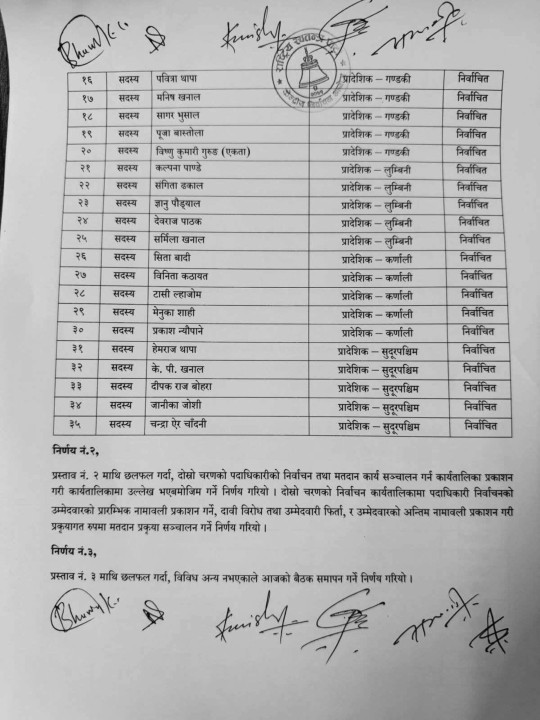 राष्ट्रिय स्वतन्त्र पार्टी
१६ सदस्य पवित्रा थापा प्रादेशिक – गण्डकी निर्वाचित
१७ सदस्य मनिष खनाल प्रादेशिक – गण्डकी निर्वाचित
१८ सदस्य सागर भुसाल प्रादेशिक – गण्डकी निर्वाचित
१९ सदस्य पूजा बास्तोला प्रादेशिक – गण्डकी निर्वाचित
२० सदस्य विष्णु कुमारी गुरुङ (एकता) प्रादेशिक – गण्डकी निर्वाचित
२१ सदस्य कल्पना पाण्डे प्रादेशिक – लुम्बिनी निर्वाचित
२२ सदस्य संगिता ढकाल प्रादेशिक – लुम्बिनी निर्वाचित
२३ सदस्य ज्ञानु पौड्याल प्रादेशिक – लुम्बिनी निर्वाचित
२४ सदस्य देवराज पाठक प्रादेशिक – लुम्बिनी निर्वाचित
२५ सदस्य सर्मिला खनाल प्रादेशिक – लुम्बिनी निर्वाचित
२६ सदस्य सिता बादी प्रादेशिक – कर्णाली निर्वाचित
२७ सदस्य विनिता कठायत प्रादेशिक – कर्णाली निर्वाचित
२८ सदस्य टासी ल्हाजोम प्रादेशिक – कर्णाली निर्वाचित
२९ सदस्य मेनुका शाही प्रादेशिक – कर्णाली निर्वाचित
३० सदस्य प्रकाश न्यौपाने प्रादेशिक – कर्णाली निर्वाचित
३१ सदस्य हेमराज थापा प्रादेशिक – सुदूरपश्चिम निर्वाचित
३२ सदस्य के. पी. खनाल प्रादेशिक – सुदूरपश्चिम निर्वाचित
३३ सदस्य दीपक राज बोहरा प्रादेशिक – सुदूरपश्चिम निर्वाचित
३४ सदस्य जानीका जोशी प्रादेशिक – सुदूरपश्चिम निर्वाचित
३५ सदस्य चन्द्रा ऐर चाँदनी प्रादेशिक – सुदूरपश्चिम निर्वाचित
निर्णय नं.२,
प्रस्ताव नं. २ माथि छलफल गर्दा, दोस्रो चरणको पदाधिकारीको निर्वाचन तथा मतदान कार्य सञ्चालन गर्न कार्यतालिका प्रकाशन
गरी कार्यतालिकामा उल्लेख भएबमोजिम गर्ने निर्णय गरियो । दोस्रो चरणको निर्वाचन कार्यतालिकामा पदाधिकारी निर्वाचनको
उम्मेदवारको प्रारम्भिक नामावली प्रकाशन गर्ने, दावी विरोध तथा उम्मेदवारी फिर्ता, र उम्मेदवारको अन्तिम नामावली प्रकाशन गरी
प्रकृयागत रुपमा मतदान प्रकृया सञ्चालन गर्ने निर्णय गरियो ।
निर्णय नं.३,
प्रस्ताव नं. ३ माथि छलफल गर्दा, विविध अन्य नभएकाले आजको बैठक समापन गर्ने निर्णय गरियो ।